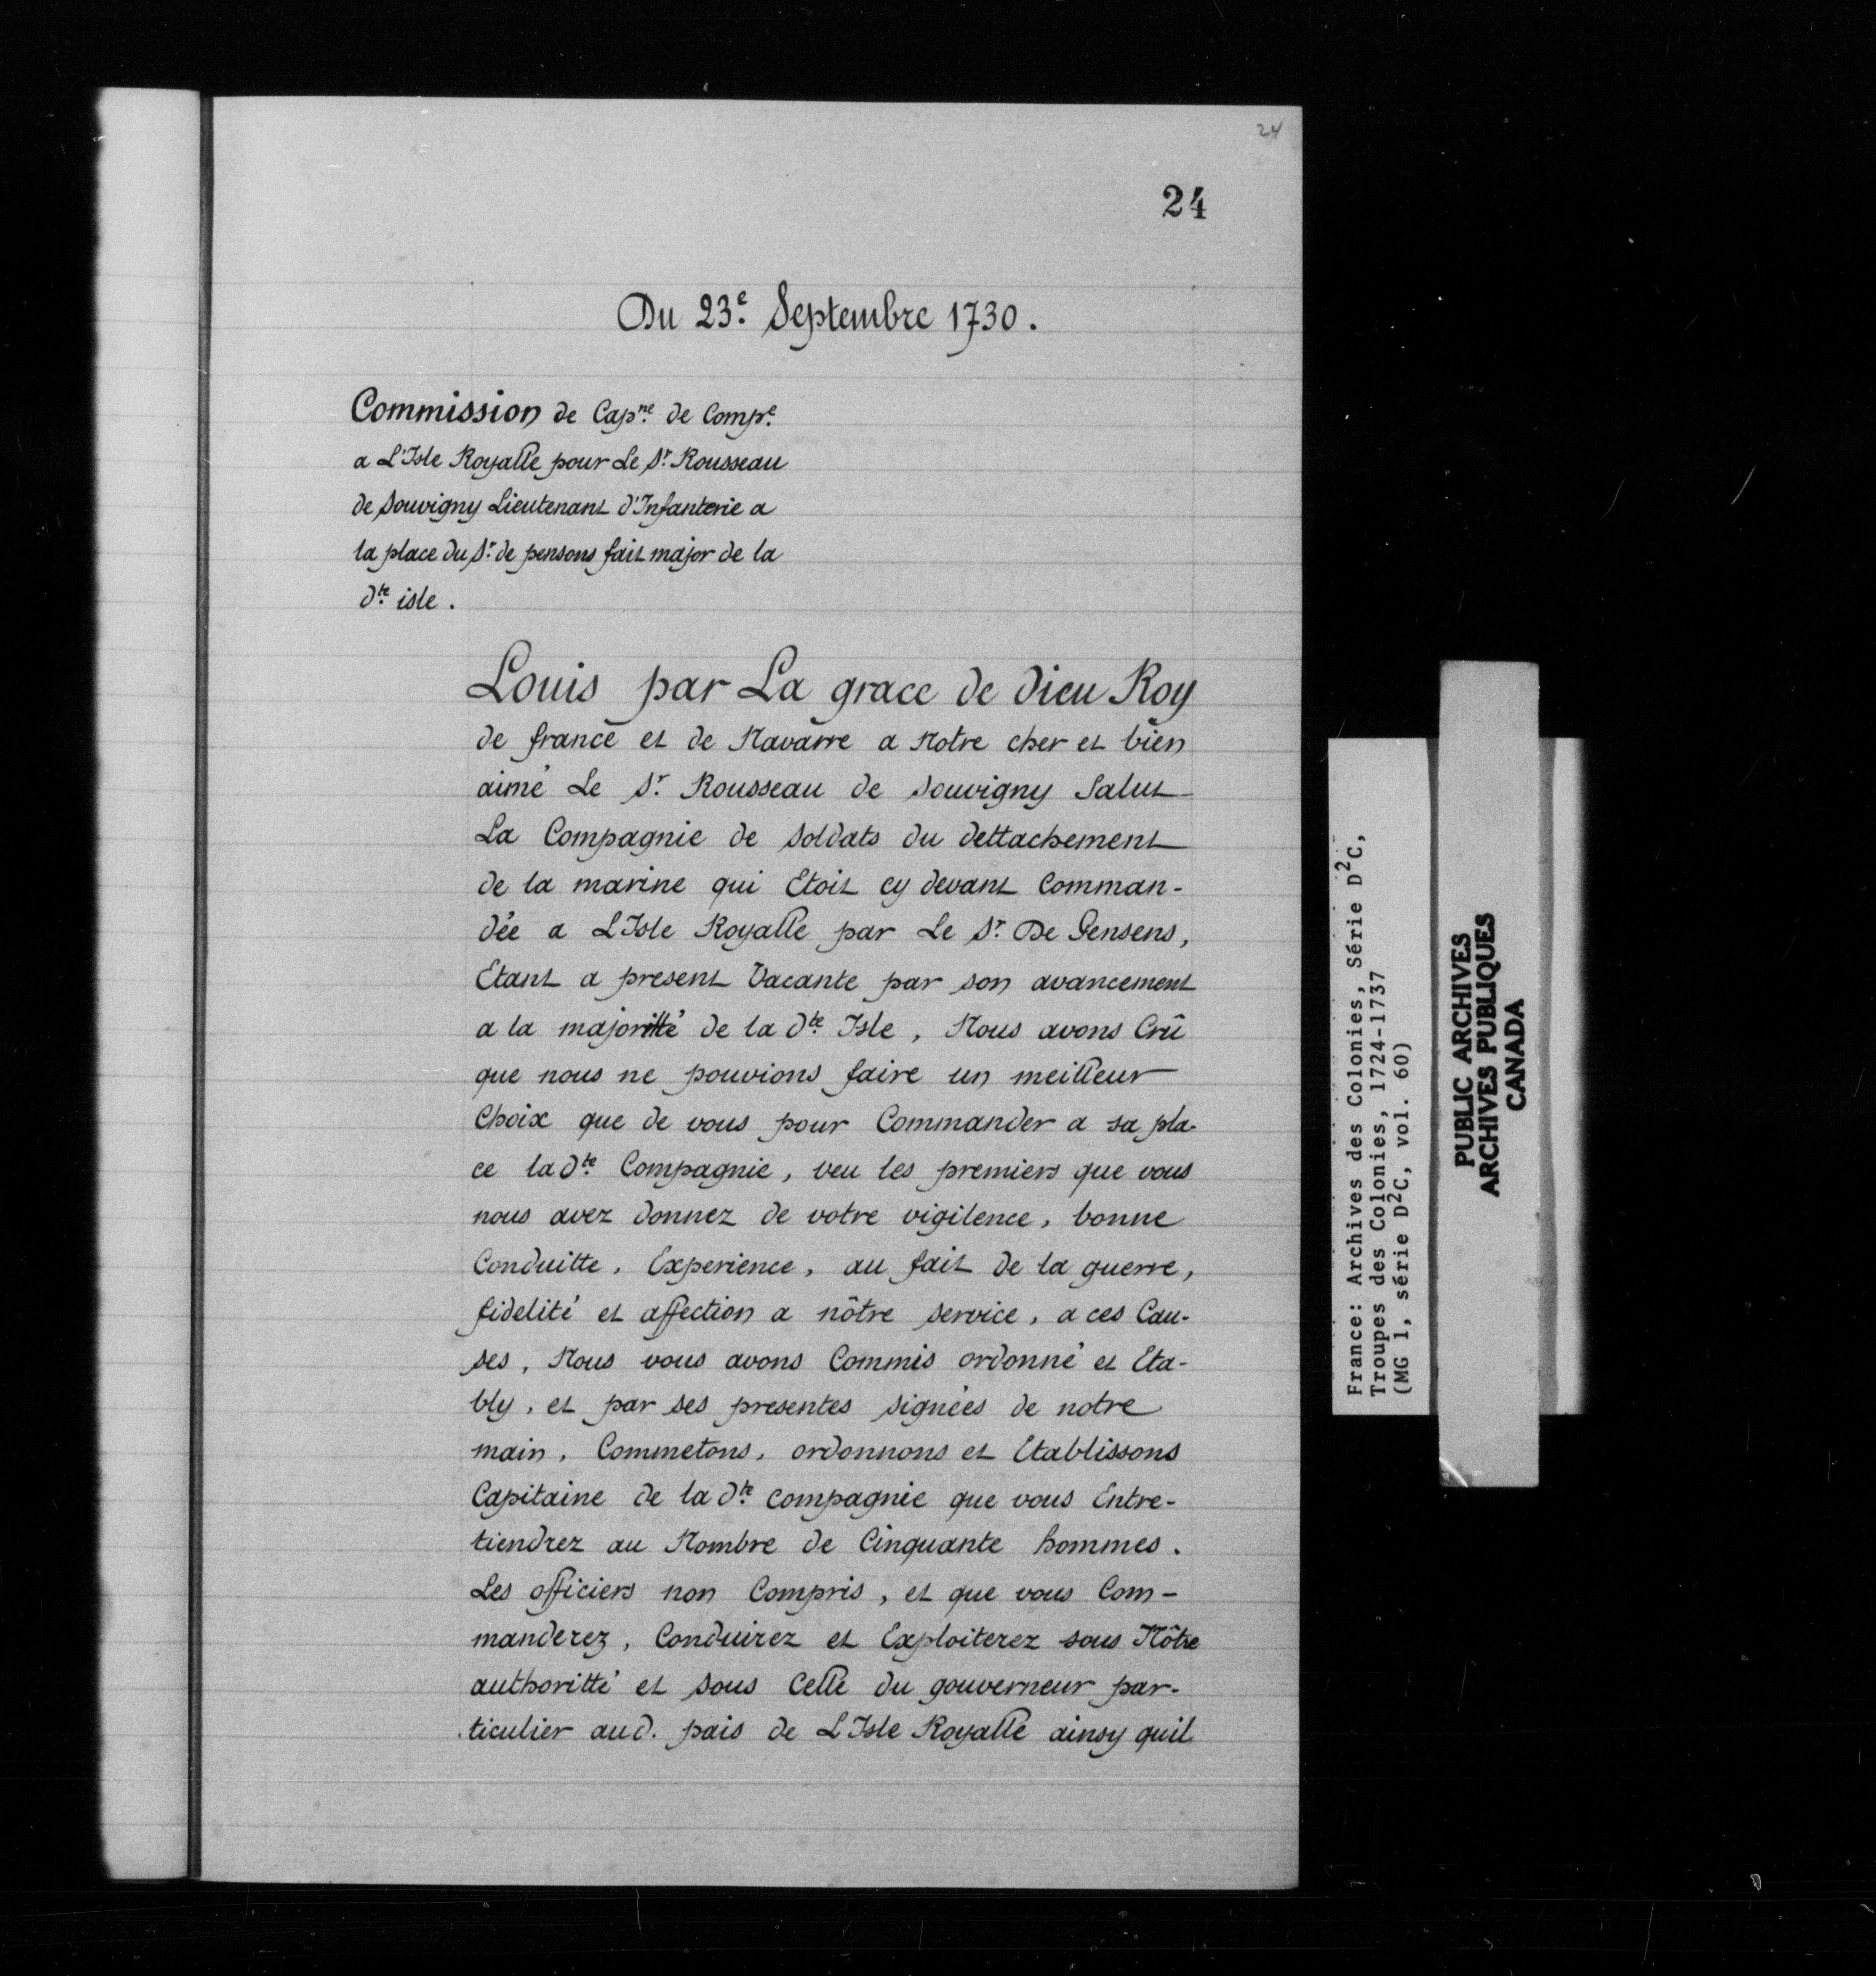 24
24
Du 23.e Septembre 1730.
Commission de Cap.ne de Comp.e
a L'Isle Royalle pour Le S.r Rousseau
de Souvigny Lieutenant d'Infanterie a
la place du S.r de pensons fait major de la
d.te isle.
Louis par La grace de Dieu Roy
de france et de Navarre a Notre cher et bien
aimé Le S.r Rousseau de Souvigny Salut
La Compagnie de Soldats du dettachement
de la marine qui Etoit cy devant Comman-
dée a L'Isle Royalle par Le S.r De Pensens,
Etant a present Vacante par son avancement
a la majoritté de la d.te Isle, Nous avons Crû
que nous ne pouvions faire un meilleur
Choix que de vous pour Commander a sa pla-
ce la d.te Compagnie, veu les premiers que vous
nous avez donnez de votre vigilence, bonne
Conduitte, Experience, au fait de la guerre,
fidelité et affection a nôtre service, a ces Cau-
ses, Nous vous avons Commis ordonné et Eta-
bly, et par ses presentes signées de notre
main, Commetons, ordonnons et Etablissons
Capitaine de la d.te compagnie que vous Entre-
tiendrez au Nombre de Cinquante hommes.
Les officiers non Compris, et que vous Com-
manderez, Conduirez et Exploiterez sous Nôtre
authoritté et sous Celle du gouverneur par-
ticulier aud. pais de L'Isle Royalle ainsy quil
France: Archives des Colonies, Série D2C,
Troupes des Colonies, 1724-1737
(MG 1, série D2C, vol. 60)
PUBLIC ARCHIVES
ARCHIVES PUBLIQUES
CANADA